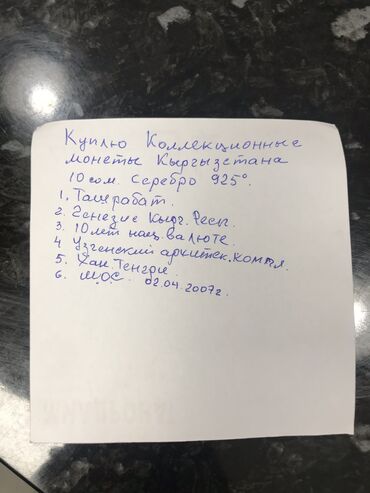 Куплю Коллекционные
монеты Кыргызстана
10 сом. Серебро 925°.
1, Ташрабат.
2. Генезис Кырг. Респ.
3. 10 лет нац. валюте.
4 Узгенский архитек. компл.
5. Хан. Тенгри.
6. ШОС. 02.04.2007г.